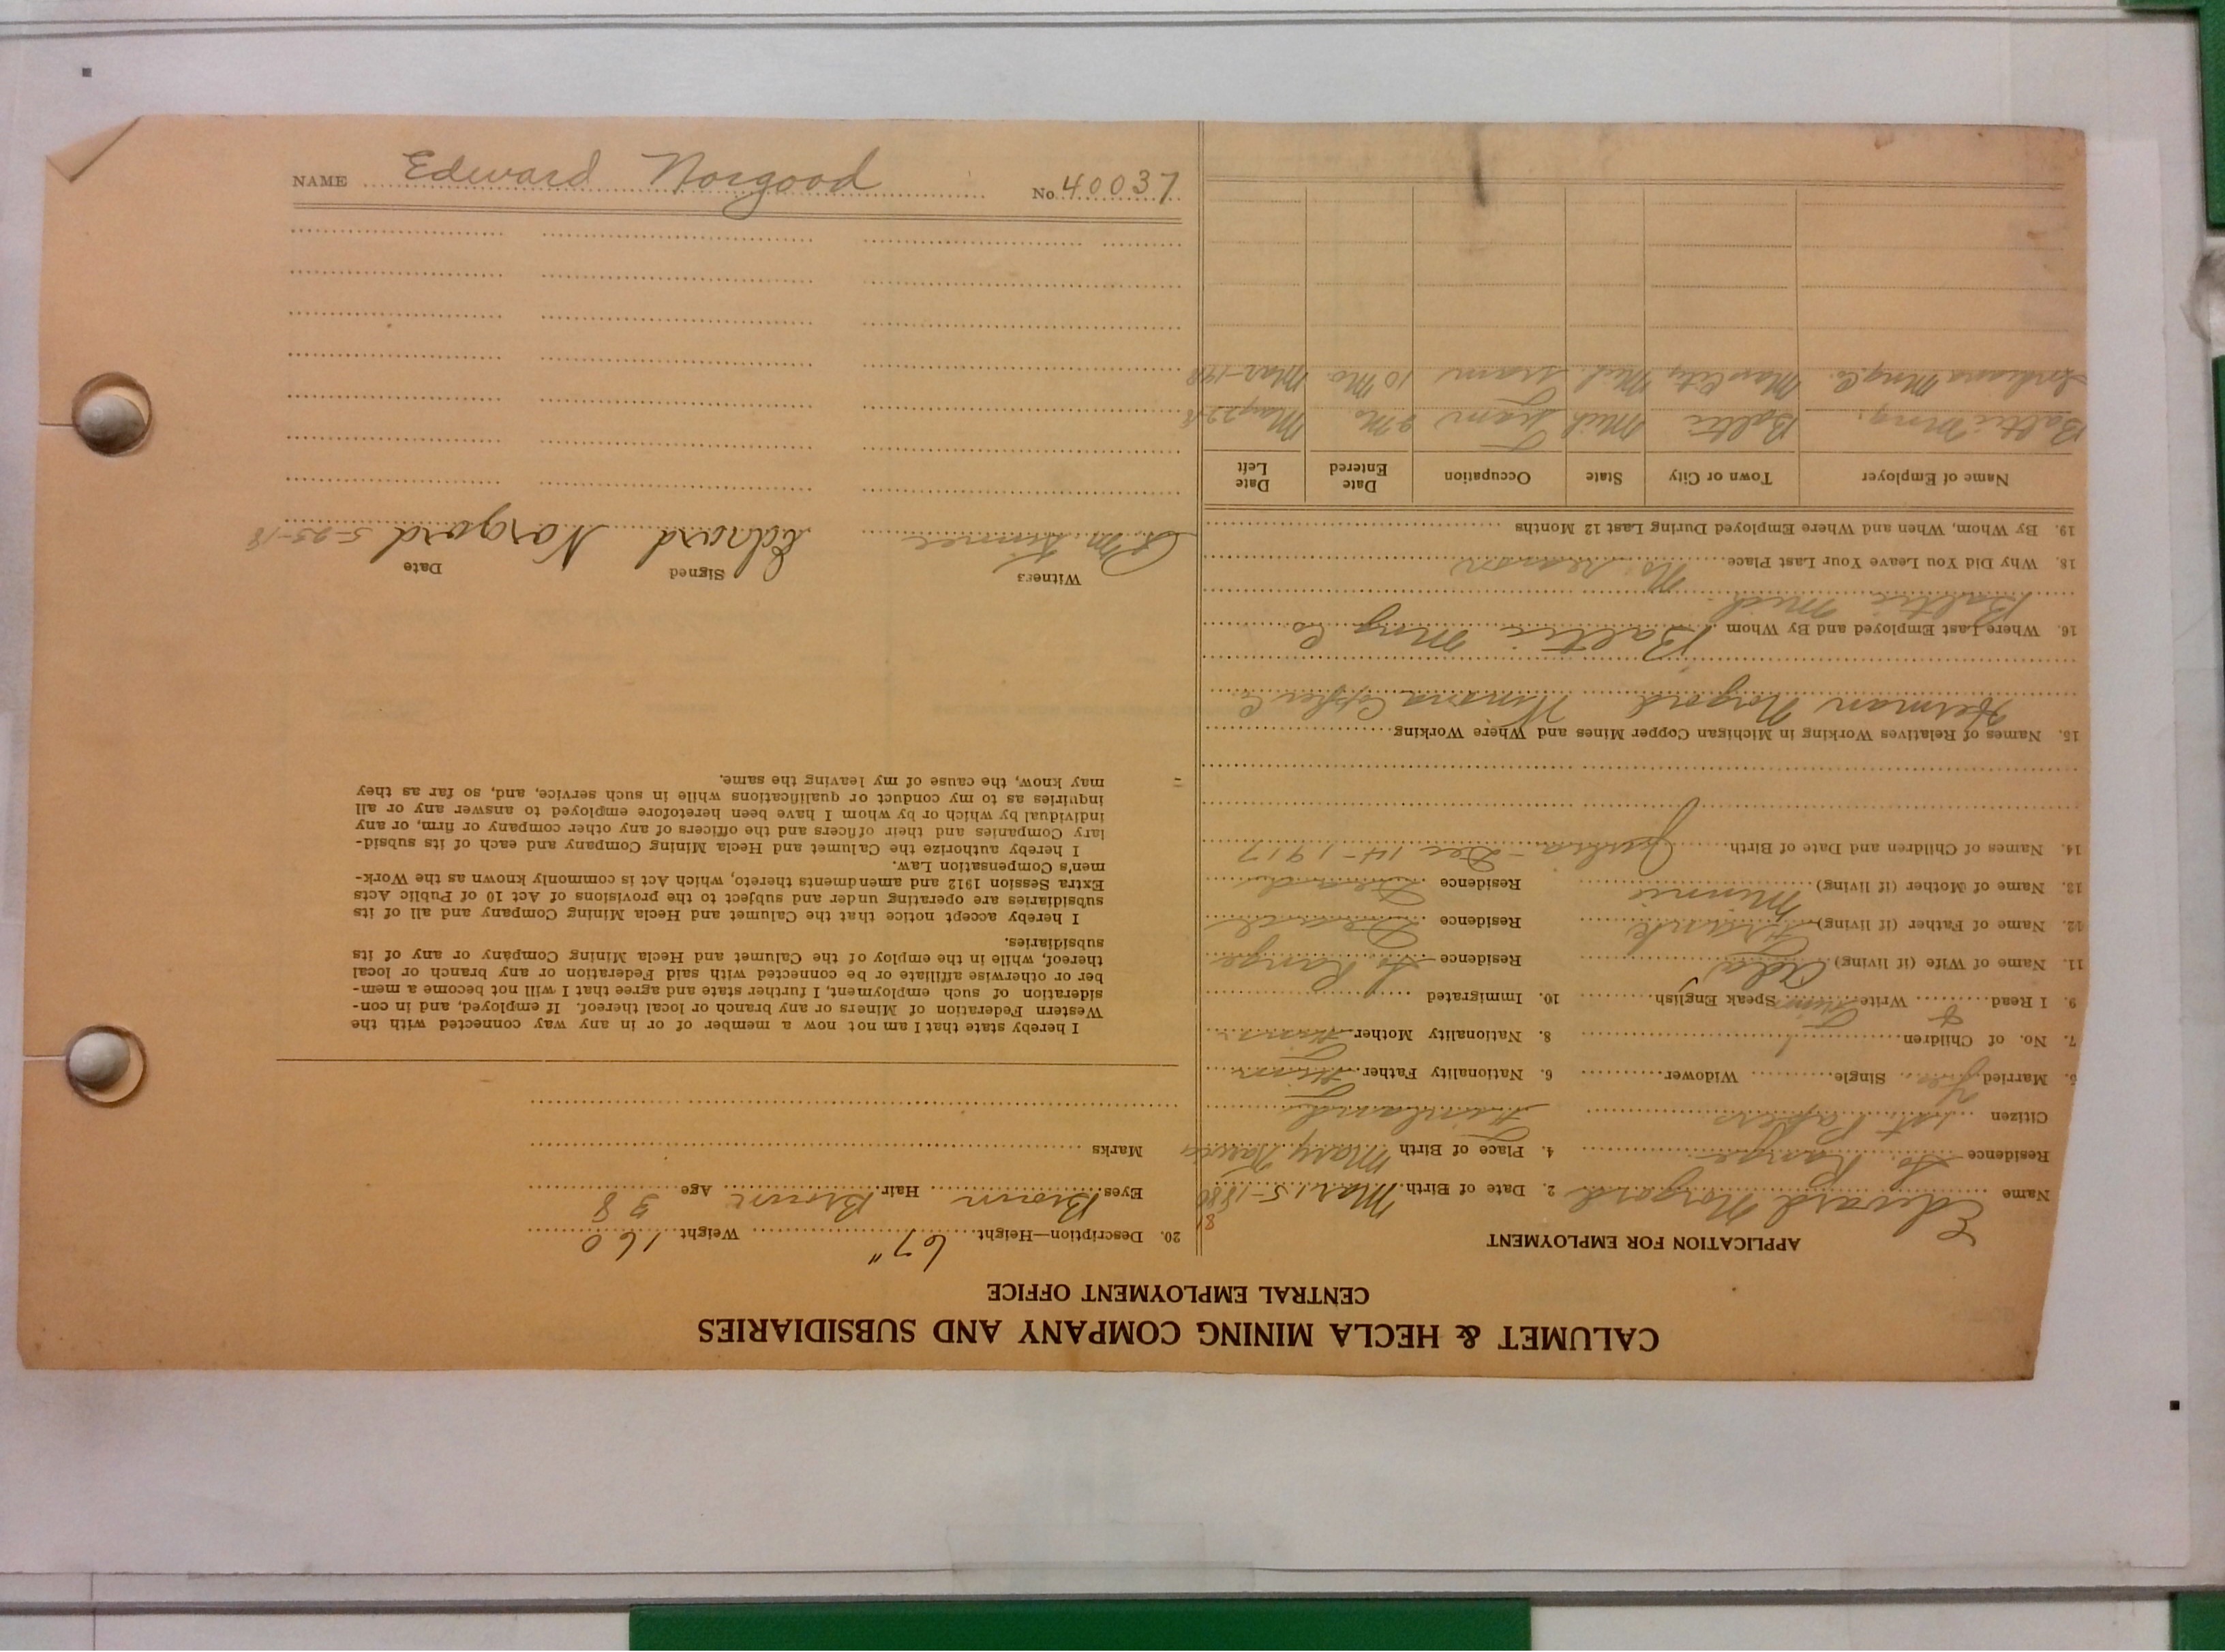 NAME Edward Norgood No. 40037
CALUMET & HECLA MINING COMPANY AND SUBSIDIARIES
CENTRAL EMPLOYMENT OFFICE
APPLICATION FOR EMPLOYMENT
Name Edward Norgard 2. Date of Birth. Mar. 15-1880
81
Residence So. Range 4. Place of Birth
Citizen 1st Papers Finland
5. Married Yes Single Widower 6. Nationality Father Finn
7. No. of Children 1 8. Nationality Mother Finn
9. I Read & Write Finn Speak English 10. Immigrated
11. Name of Wife (if living) Ada Residence So. Range
12. Name of Father (if living) Frank Residence Dead
13. Name of Mother (if living) Minnie Residence Dead
14. Names of Children and Date of Birth. Dec 14-1917
15. Names of Relatives Working in Michigan Copper Mines and Where Working
Herman Norgard Winona Copper C
16. Where Last Employed and By Whom Baltic Mng Co.
Baltic Mich.
18. Why Did You Leave Your Last Place No. reason
19. By Whom, When and Where Employed During Last 12 Months
Name of Employer Town or City State Occupation Date Entered Date Left
Baltic Mng. Baltic Mich Tram 2 Mo May 22-18
Indiana Mng Co. Mass City Mich Tram 10 Mo. Mar-1918
20. Description—Height 67" Weight 160
Eyes Brown Hair Brown Age 38
Marks
I hereby state that I am not now a member of or in any way connected with the
Western Federation of Miners or any branch or local thereof. If employed, and in con-
sideration of such employment, I further state and agree that I will not become a mem-
ber or otherwise affiliate or be connected with said Federation or any branch or local
thereof, while in the employ of the Calumet and Hecla Mining Company or any of its
subsidiaries.
I hereby accept notice that the Calumet and Hecla Mining Company and all of its
subsidiaries are operating under and subject to the provisions of Act 10 of Public Acts
Extra Session 1912 and amendments thereto, which Act is commonly known as the Work-
men's Compensation Law.
I hereby authorize the Calumet and Hecla Mining Company and each of its subsid-
iary Companies and their officers and the officers of any other company or firm, or any
individual by which or by whom I have been heretofore employed to answer any or all
inquiries as to my conduct or qualifications while in such service, and, so far as they
may know, the cause of my leaving the same.
Witness Signed Date
Edward Norgard 5-23-18